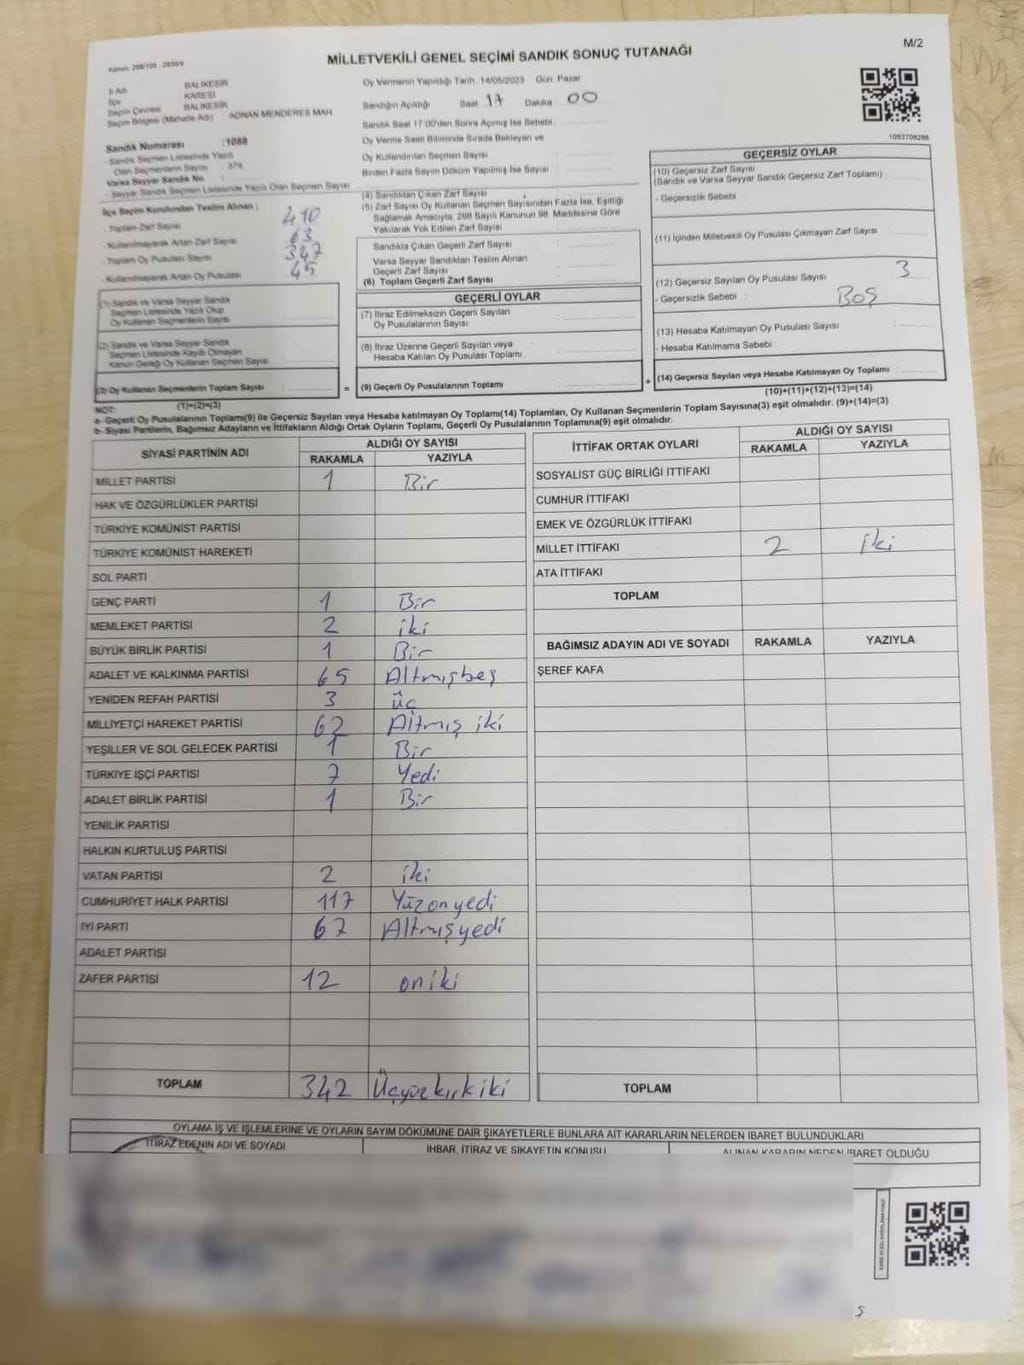 Kanun: 298/105 - 2839/4
MİLLETVEKİLİ GENEL SEÇİMİ SANDIK SONUÇ TUTANAĞI
M/2
İl Adı BALIKESİR
İlçe KARESİ
Seçim Çevresi BALIKESİR
Seçim Bölgesi (Mahalle Adı) ADNAN MENDERES MAH
Sandık Numarası :1088
- Sandık Seçmen Listesinde Yazılı
Olan Seçmenlerin Sayısı : 374
Varsa Seyyar Sandık No :
- Seyyar Sandık Seçmen Listesinde Yazılı Olan Seçmen Sayısı
İlçe Seçim Kurulundan Teslim Alınan ;
- Toplam Zarf Sayısı 410
- Kullanılmayarak Artan Zarf Sayısı 63
- Toplam Oy Pusulası Sayısı 347
- Kullanılmayarak Artan Oy Pusulası 45
(1) Sandık ve Varsa Seyyar Sandık
Seçmen Listesinde Yazılı Olup
Oy Kullanan Seçmenlerin Sayısı
(2) Sandık ve Varsa Seyyar Sandık
Seçmen Listesinde Kayıtlı Olmayan
Kanun Gereği Oy Kullanan Seçmen Sayısı
(3) Oy Kullanan Seçmenlerin Toplam Sayısı :
(1)+(2)=(3)
Oy Vermenin Yapıldığı Tarih :14/05/2023 Gün: Pazar
Sandığın Açıldığı Saat 17 Dakika 00
Sandık Saat 17:00'den Sonra Açılmış İse Sebebi :
Oy Verme Saati Bitiminde Sırada Bekleyen ve
Oy Kullandırılan Seçmen Sayısı :
Birden Fazla Sayım Döküm Yapılmış İse Sayısı :
(4) Sandıktan Çıkan Zarf Sayısı
(5) Zarf Sayısı Oy Kullanan Seçmen Sayısından Fazla İse, Eşitliği
Sağlamak Amacıyla, 298 Sayılı Kanunun 98. Maddesine Göre
Yakılarak Yok Edilen Zarf Sayısı :
Sandıkta Çıkan Geçerli Zarf Sayısı :
Varsa Seyyar Sandıktan Teslim Alınan
Geçerli Zarf Sayısı :
(6) Toplam Geçerli Zarf Sayısı :
GEÇERLİ OYLAR
(7) İtiraz Edilmeksizin Geçerli Sayılan
Oy Pusulalarının Sayısı :
(8) İtiraz Üzerine Geçerli Sayılan veya
Hesaba Katılan Oy Pusulası Toplamı :
= (9) Geçerli Oy Pusulalarının Toplamı :
1083708286
GEÇERSİZ OYLAR
(10) Geçersiz Zarf Sayısı
(Sandık ve Varsa Seyyar Sandık Geçersiz Zarf Toplamı) :
- Geçersizlik Sebebi :
(11) İçinden Milletvekili Oy Pusulası Çıkmayan Zarf Sayısı :
(12) Geçersiz Sayılan Oy Pusulası Sayısı : 3
- Geçersizlik Sebebi : BOŞ
(13) Hesaba Katılmayan Oy Pusulası Sayısı :
- Hesaba Katılmama Sebebi :
+ (14) Geçersiz Sayılan veya Hesaba Katılmayan Oy Toplamı :
(10)+(11)+(12)+(13)=(14)
NOT:
a- Geçerli Oy Pusulalarının Toplamı(9) ile Geçersiz Sayılan veya Hesaba katılmayan Oy Toplamı(14) Toplamları, Oy Kullanan Seçmenlerin Toplam Sayısına(3) eşit olmalıdır. (9)+(14)=(3)
b- Siyasi Partilerin, Bağımsız Adayların ve İttifakların Aldığı Ortak Oyların Toplamı, Geçerli Oy Pusulalarının Toplamına(9) eşit olmalıdır.
SİYASİ PARTİNİN ADI ALDIĞI OY SAYISI
RAKAMLA YAZIYLA
MİLLET PARTİSİ 1 Bir
HAK VE ÖZGÜRLÜKLER PARTİSİ
TÜRKİYE KOMÜNİST PARTİSİ
TÜRKİYE KOMÜNİST HAREKETİ
SOL PARTİ
GENÇ PARTİ 1 Bir
MEMLEKET PARTİSİ 2 iki
BÜYÜK BİRLİK PARTİSİ 1 Bir
ADALET VE KALKINMA PARTİSİ 65 Altmışbeş
YENİDEN REFAH PARTİSİ 3 üç
MİLLİYETÇİ HAREKET PARTİSİ 62 Altmış iki
YEŞİLLER VE SOL GELECEK PARTİSİ 1 Bir
TÜRKİYE İŞÇİ PARTİSİ 7 Yedi
ADALET BİRLİK PARTİSİ 1 Bir
YENİLİK PARTİSİ
HALKIN KURTULUŞ PARTİSİ
VATAN PARTİSİ 2 iki
CUMHURİYET HALK PARTİSİ 117 Yüzonyedi
İYİ PARTİ 67 Altmışyedi
ADALET PARTİSİ
ZAFER PARTİSİ 12 oniki
TOPLAM 342 Üçyüzkırkiki
İTTİFAK ORTAK OYLARI ALDIĞI OY SAYISI
RAKAMLA YAZIYLA
SOSYALİST GÜÇ BİRLİĞİ İTTİFAKI
CUMHUR İTTİFAKI
EMEK VE ÖZGÜRLÜK İTTİFAKI
MİLLET İTTİFAKI 2 iki
ATA İTTİFAKI
TOPLAM
BAĞIMSIZ ADAYIN ADI VE SOYADI RAKAMLA YAZIYLA
ŞEREF KAFA
TOPLAM
OYLAMA İŞ VE İŞLEMLERİNE VE OYLARIN SAYIM DÖKÜMÜNE DAİR ŞİKAYETLERLE BUNLARA AİT KARARLARIN NELERDEN İBARET BULUNDUKLARI
İTİRAZ EDENİN ADI VE SOYADI İHBAR, İTİRAZ VE ŞİKAYETİN KONUSU ALINAN KARARIN NEDEN İBARET OLDUĞU